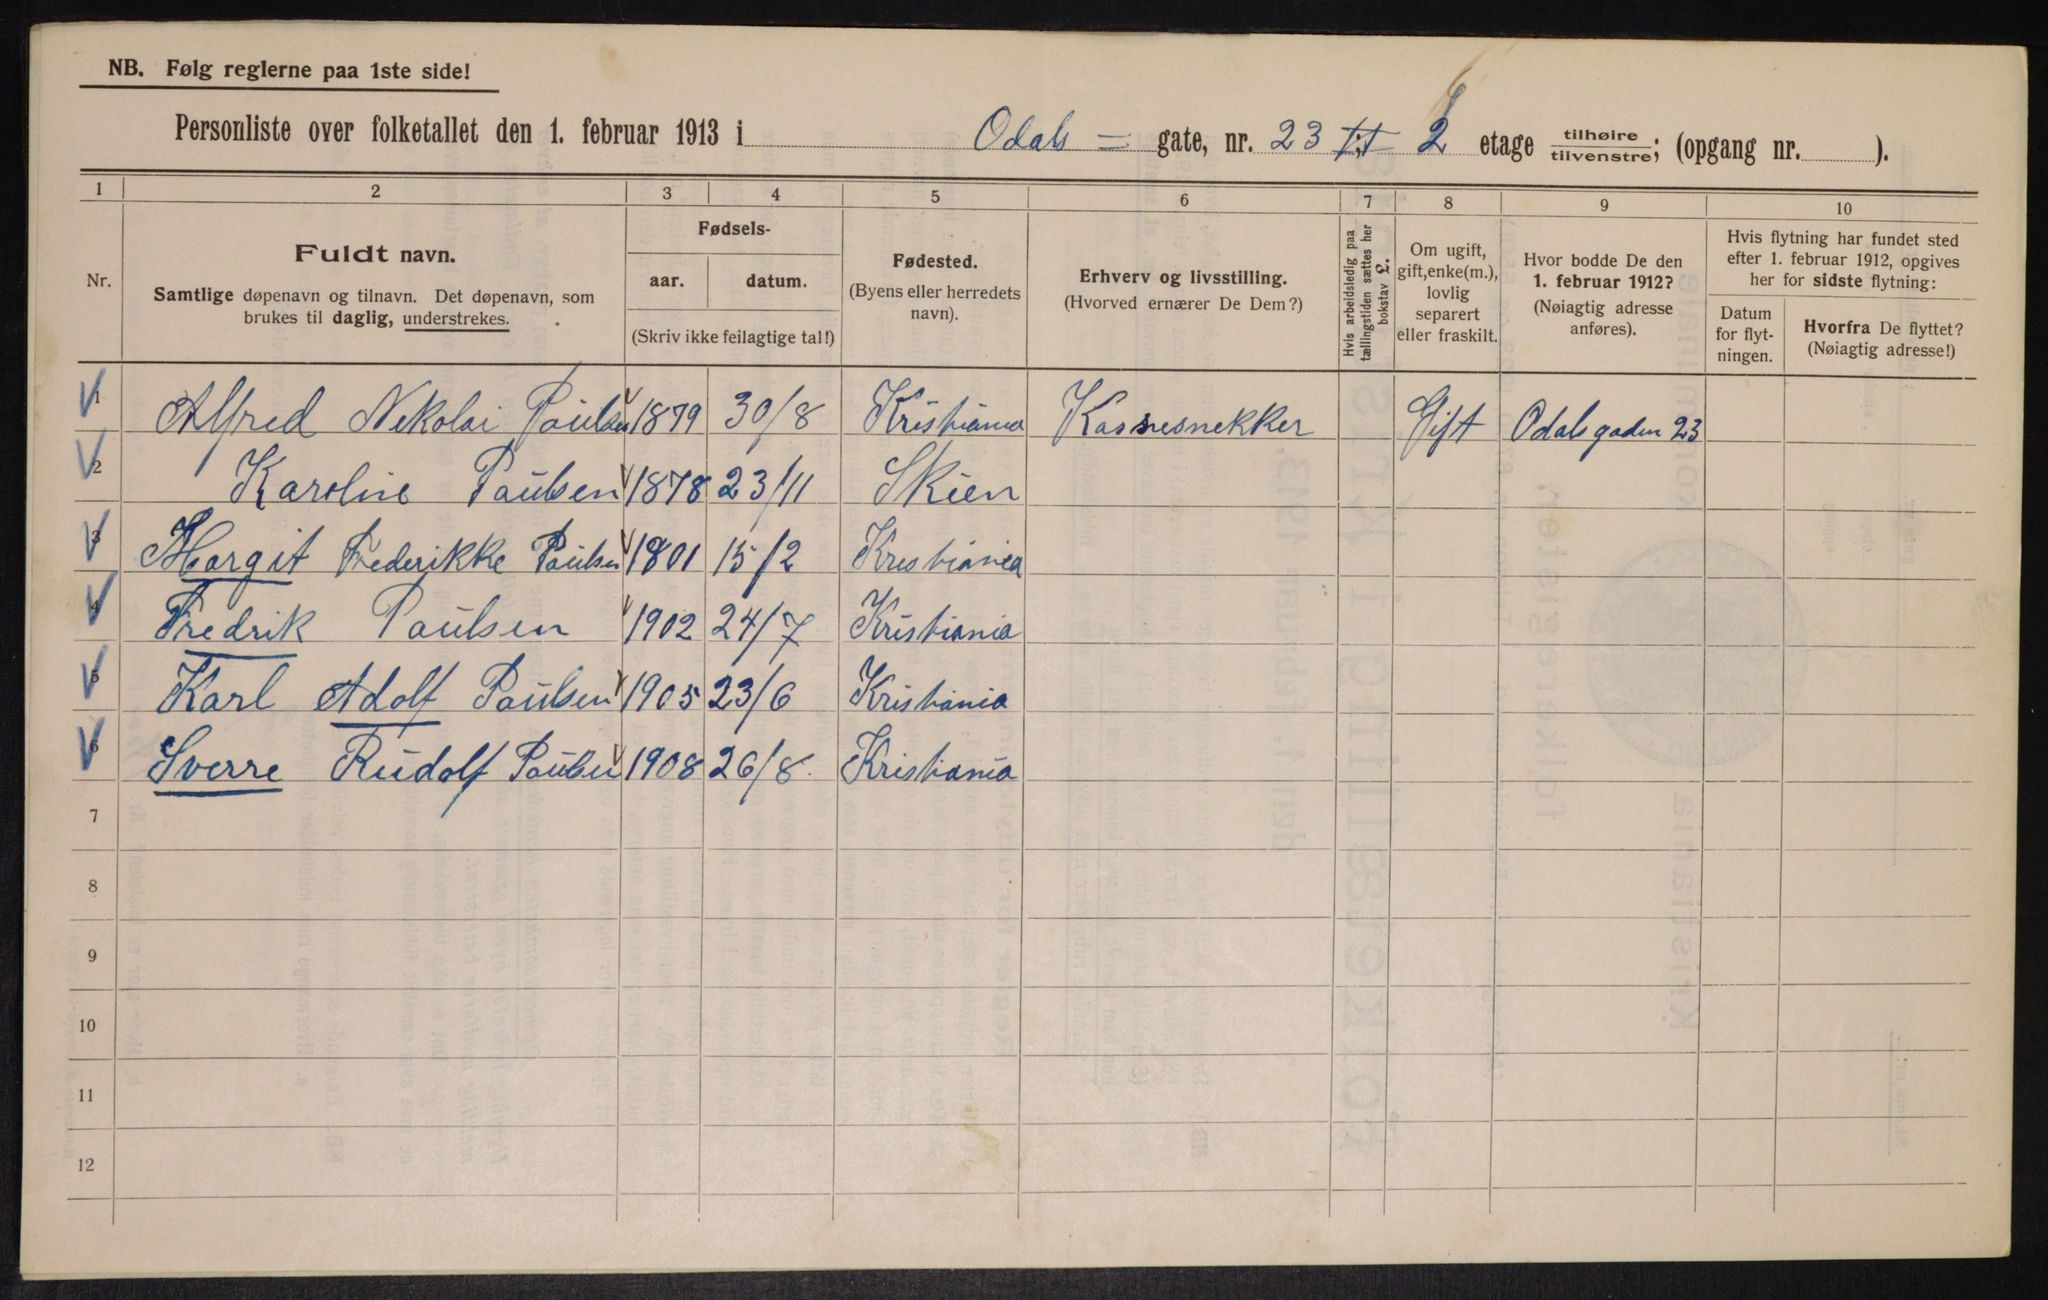 NB. Følg reglerne paa 1ste side!
Personliste over folketallet den 1. februar 1913 i Odals = gate, nr. 23 2 etage tilhøire/tilvenstre; (opgang nr. ).
1 2 3 4 5 6 7 8 9 10
Nr.
Fuldt navn.
Samtlige døpenavn og tilnavn. Det døpenavn, som
brukes til daglig, understrekes.
Fødsels-
aar. datum.
(Skriv ikke feilagtige tal!)
Fødested.
(Byens eller herredets
navn).
Erhverv og livsstilling.
(Hvorved ernærer De Dem?)
Hvis arbeidsledig paa
tællingstiden sættes her
bokstav £.
Om ugift,
gift, enke(m.),
lovlig
separert
eller fraskilt.
Hvor bodde De den
1. februar 1912?
(Nøiagtig adresse
anføres).
Hvis flytning har fundet sted
efter 1. februar 1912, opgives
her for sidste flytning:
Datum
for flyt-
ningen.
Hvorfra De flyttet?
(Nøiagtig adresse!)
1 Alfred Nikolai Paulsen 1879 30/8 Kristiania Kassesnekker Gift Odalsgaden 23
2 Karoline Paulsen 1878 23/11 Skien
3 Margit Frederikke Paulsen 1901 15/2 Kristiania
4 Fredrik Paulsen 1902 24/7 Kristiania
5 Karl Adolf Paulsen 1905 23/6 Kristiania
6 Sverre Rudolf Paulsen 1908 26/8. Kristiania
7
8
9
10
11
12